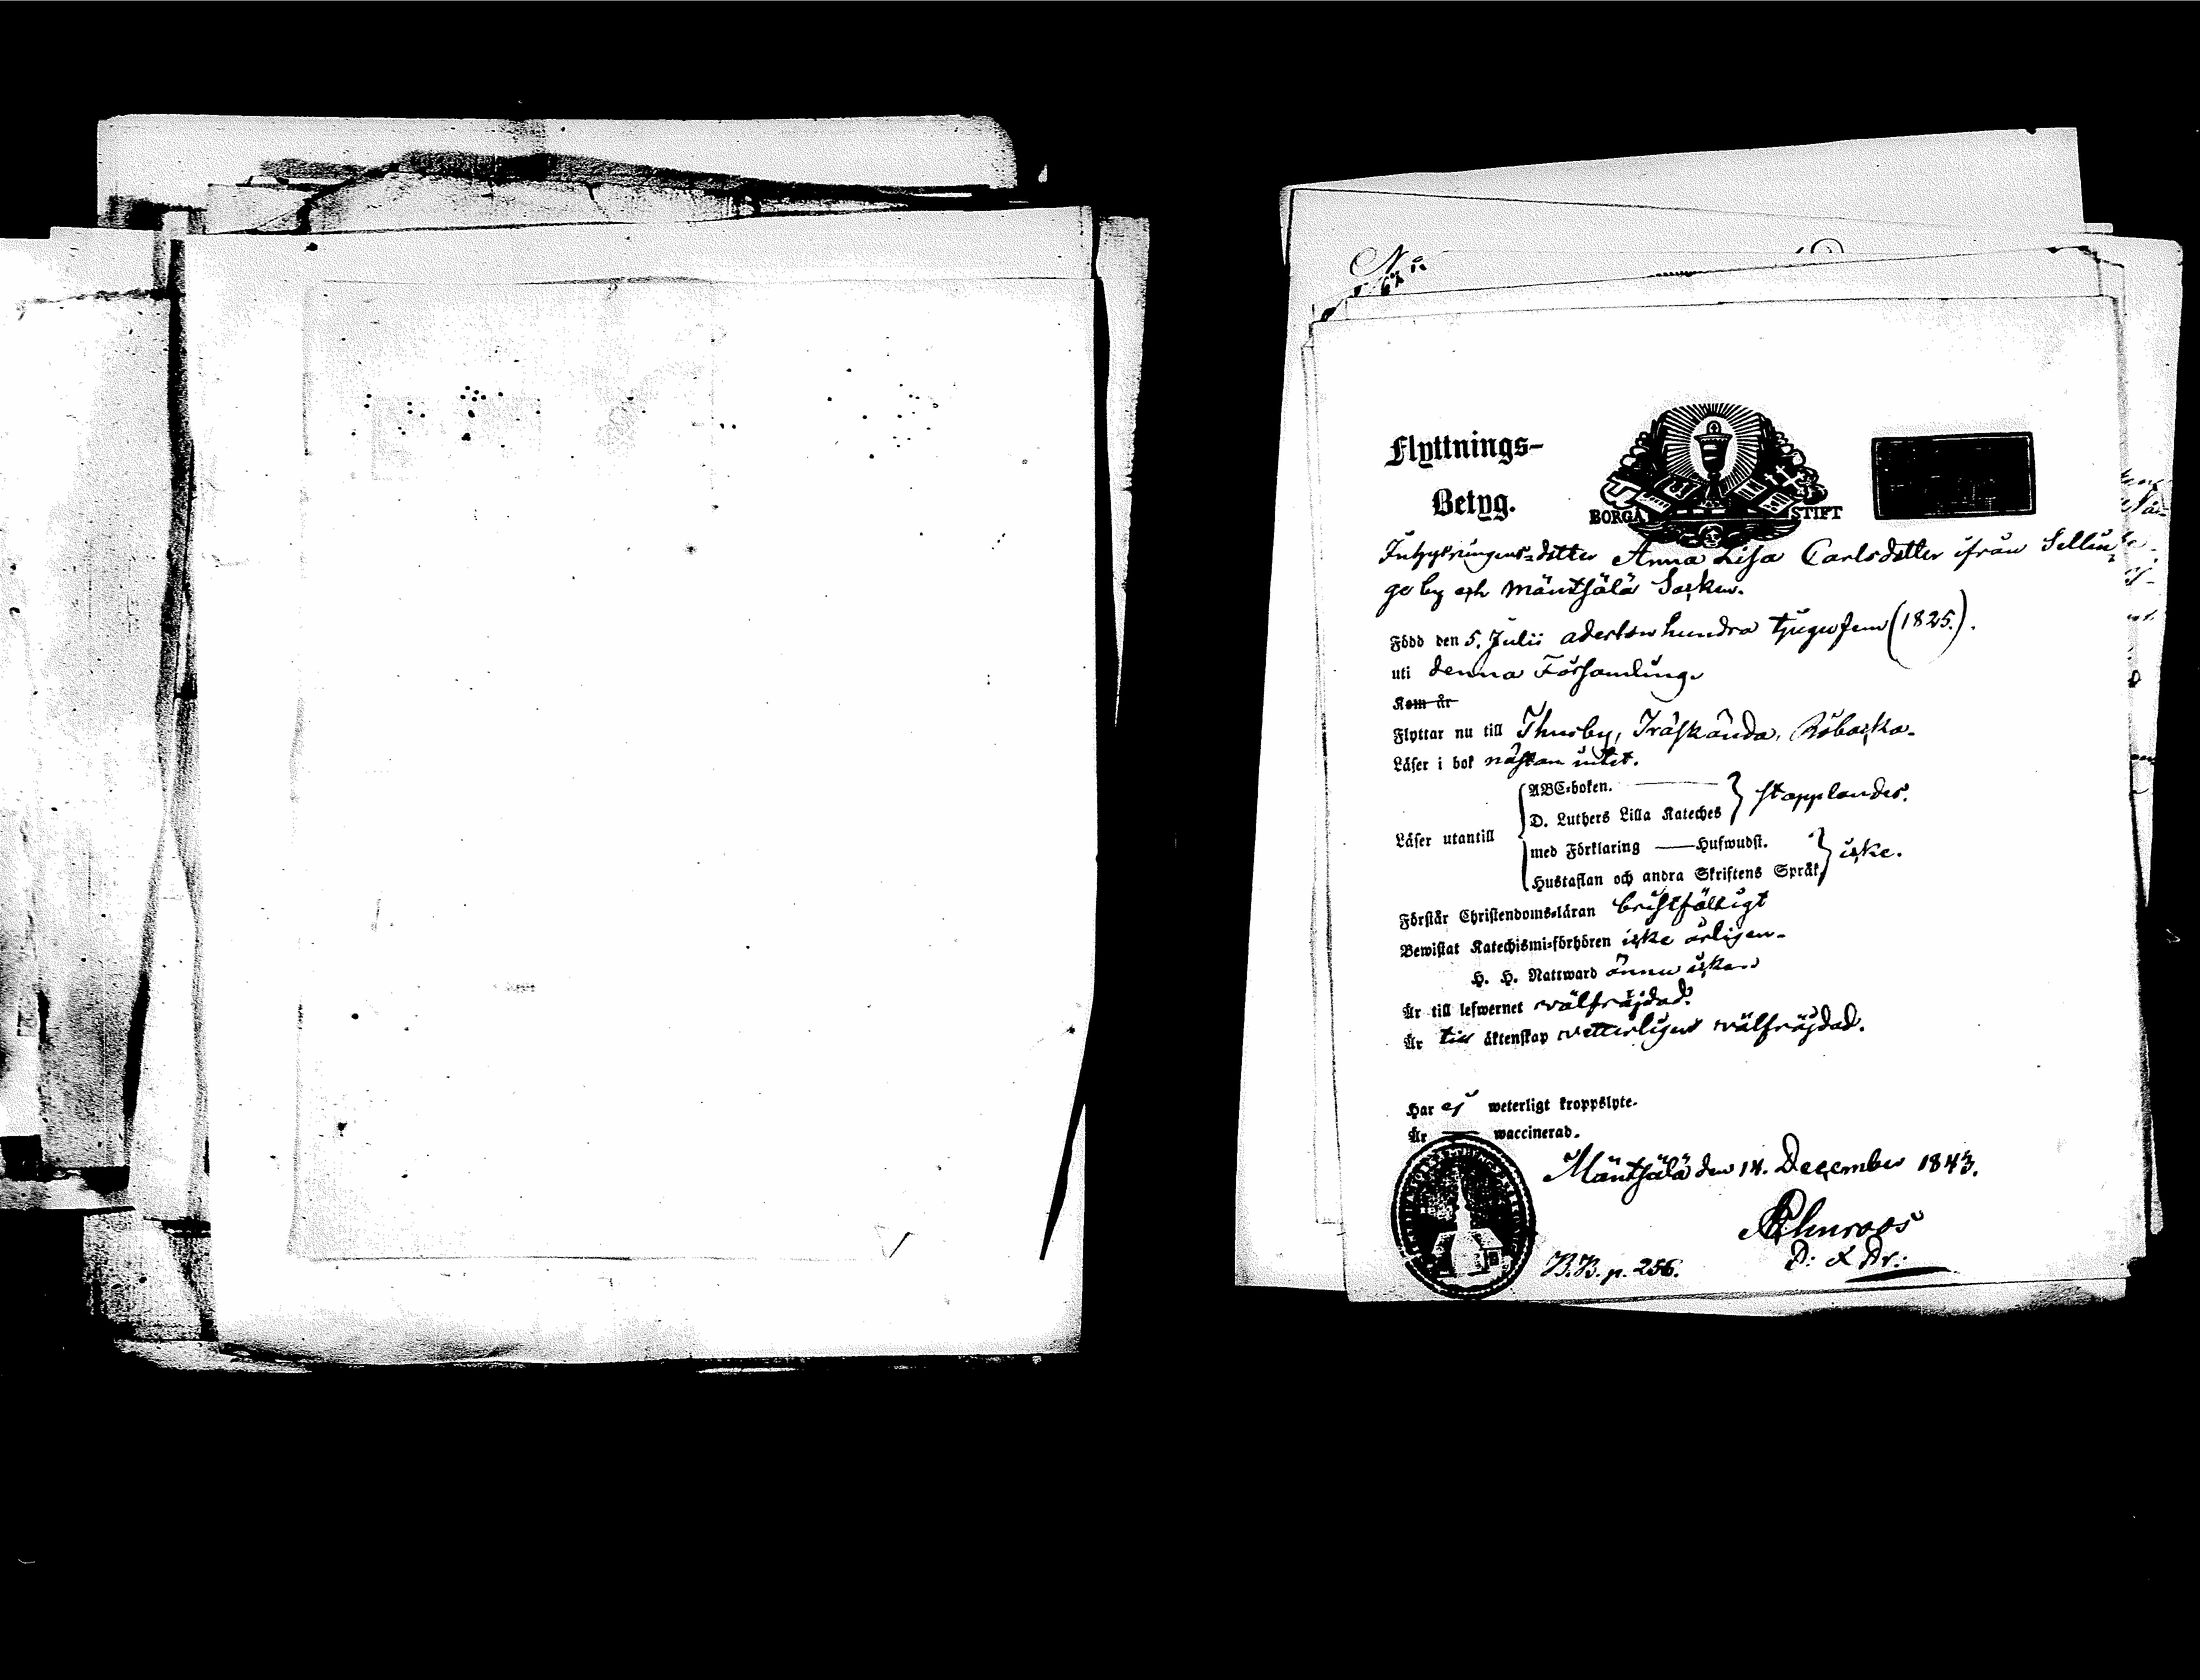 Flyttnings-
Betyg.
BORGÅ STIFT
Inhysningens-dotter Anna Lisa Carlsdotter ifrån Sellin-
ge by och Mäntsälä Socken.
Född den 5. Julii adertonhundra tjugufem (1825.).
uti denna Församling.
Kom år
Flyttar nu till Thusby, Träskända, Röbacka.
Läser i bok nästan intet.
Läser utantill
ABC-boken.
D. Luthers Lilla Kateches } stapplandes.
med Förklaring — Hufwudst.
Hustaflan och andra Skriftens Språk } icke.
Förstår Christendoms-läran bristfälligt
Bewistat Katechismi-förhören icke årligen.
H. H. Nattward ännu icke.
Är till lefwernet wälfräjdad.
Är till äktenskap wetterligen wälfräjdad.
Har ej weterligt kroppslyte.
Är — waccinerad.
Mäntsälä den 14. December 1843.
B.B. p. 256.